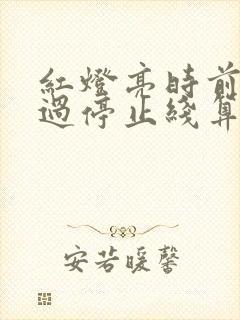 紅燈亮時前
過停止綫算
安若暖馨